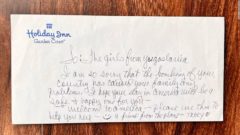 Holiday Inn
To: The girls from Yugoslavia
I am so sorry that the bombing of your
country has caused your family any
problems. I hope your stay in America will be a
safe + happy one for you -
Welcome to America - please use this to
help you here - a friend from the plane - Tracy